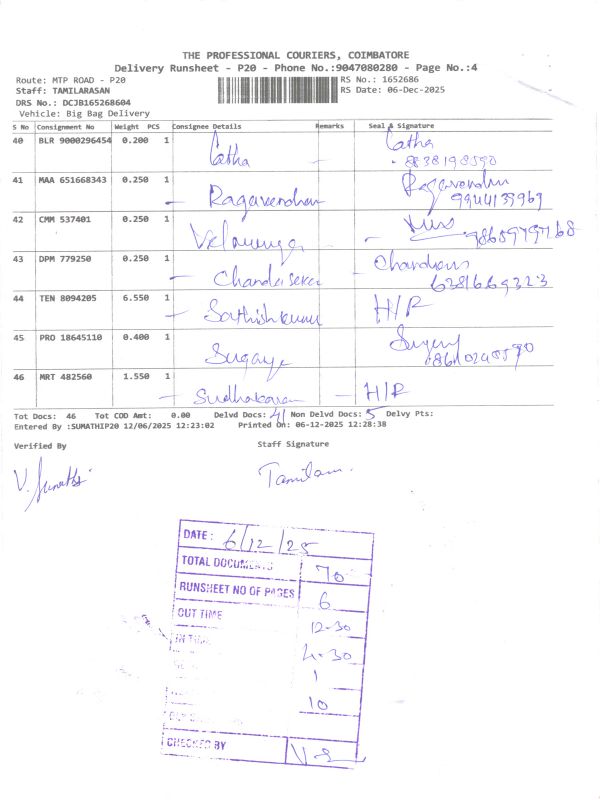 THE PROFESSIONAL COURIERS, COIMBATORE
Delivery Runsheet - P20 - Phone No.:9047080280 - Page No.:4
Route: MTP ROAD - P20 RS No.: 1652686
Staff: TAMILARASAN RS Date: 06-Dec-2025
DRS No.: DCJB165268604
Vehicle: Big Bag Delivery
S No Consignment No Weight PCS Consignee Details Remarks Seal & Signature
40 BLR 9000296454 0.200 1 Catha - Catha
8838198590
41 MAA 651668343 0.250 1 - Ragavendran Ragavendran
9944139969
42 CMM 537401 0.250 1 Velmurugan - 9865979768
43 DPM 779250 0.250 1 - Chandrasekar - Chandrans
6381669323
44 TEN 8094205 6.550 1 - Sathishkumar H/R
45 PRO 18645110 0.400 1 Sugany
46 MRT 482560 1.550 1 - Sudhakaran - H/R
Tot Docs: 46 Tot COD Amt: 0.00 Delvd Docs: 41 Non Delvd Docs: 5 Delvy Pts:
Entered By :SUMATHIP20 12/06/2025 12:23:02 Printed On: 06-12-2025 12:28:38
Verified By Staff Signature
V. Sumathi Tamilarasan
DATE: 6/12/25
TOTAL DOCUMENTS 70
RUNSHEET NO OF PAGES 6
OUT TIME 12-30
IN TIME 4-30
1
10
CHECKED BY V-S